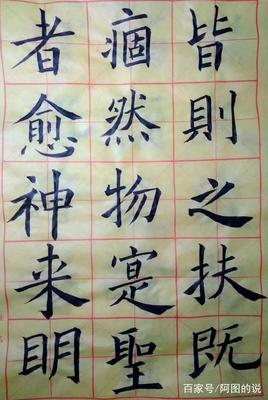 者痼皆
愈然則
神物之
来寔扶
明聖既
百家号/阿图的说